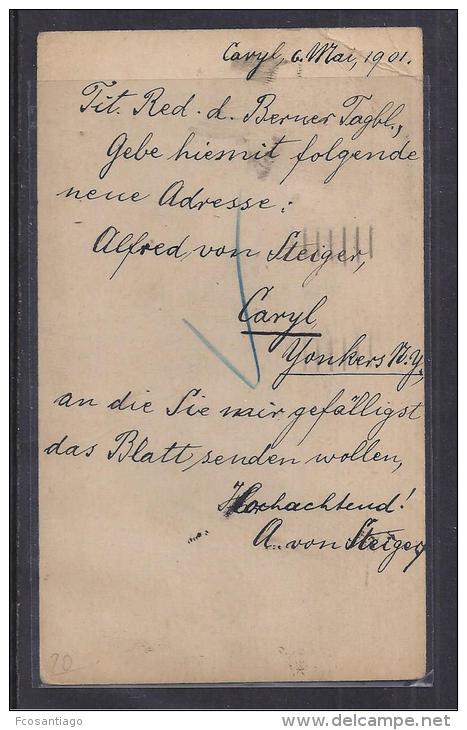 Caryl, 6. Mai, 1901.
Tit. Red. d. Berner Tagbl.,
Gebe hiemit folgende
neue Adresse:
Alfred von Steiger,
Caryl
Yonkers N.Y.,
an die Sie mir gefälligst
das Blatt senden wollen,
Hochachtend!
A. von Steiger
20
Fcosantiago
www.delcampe.net